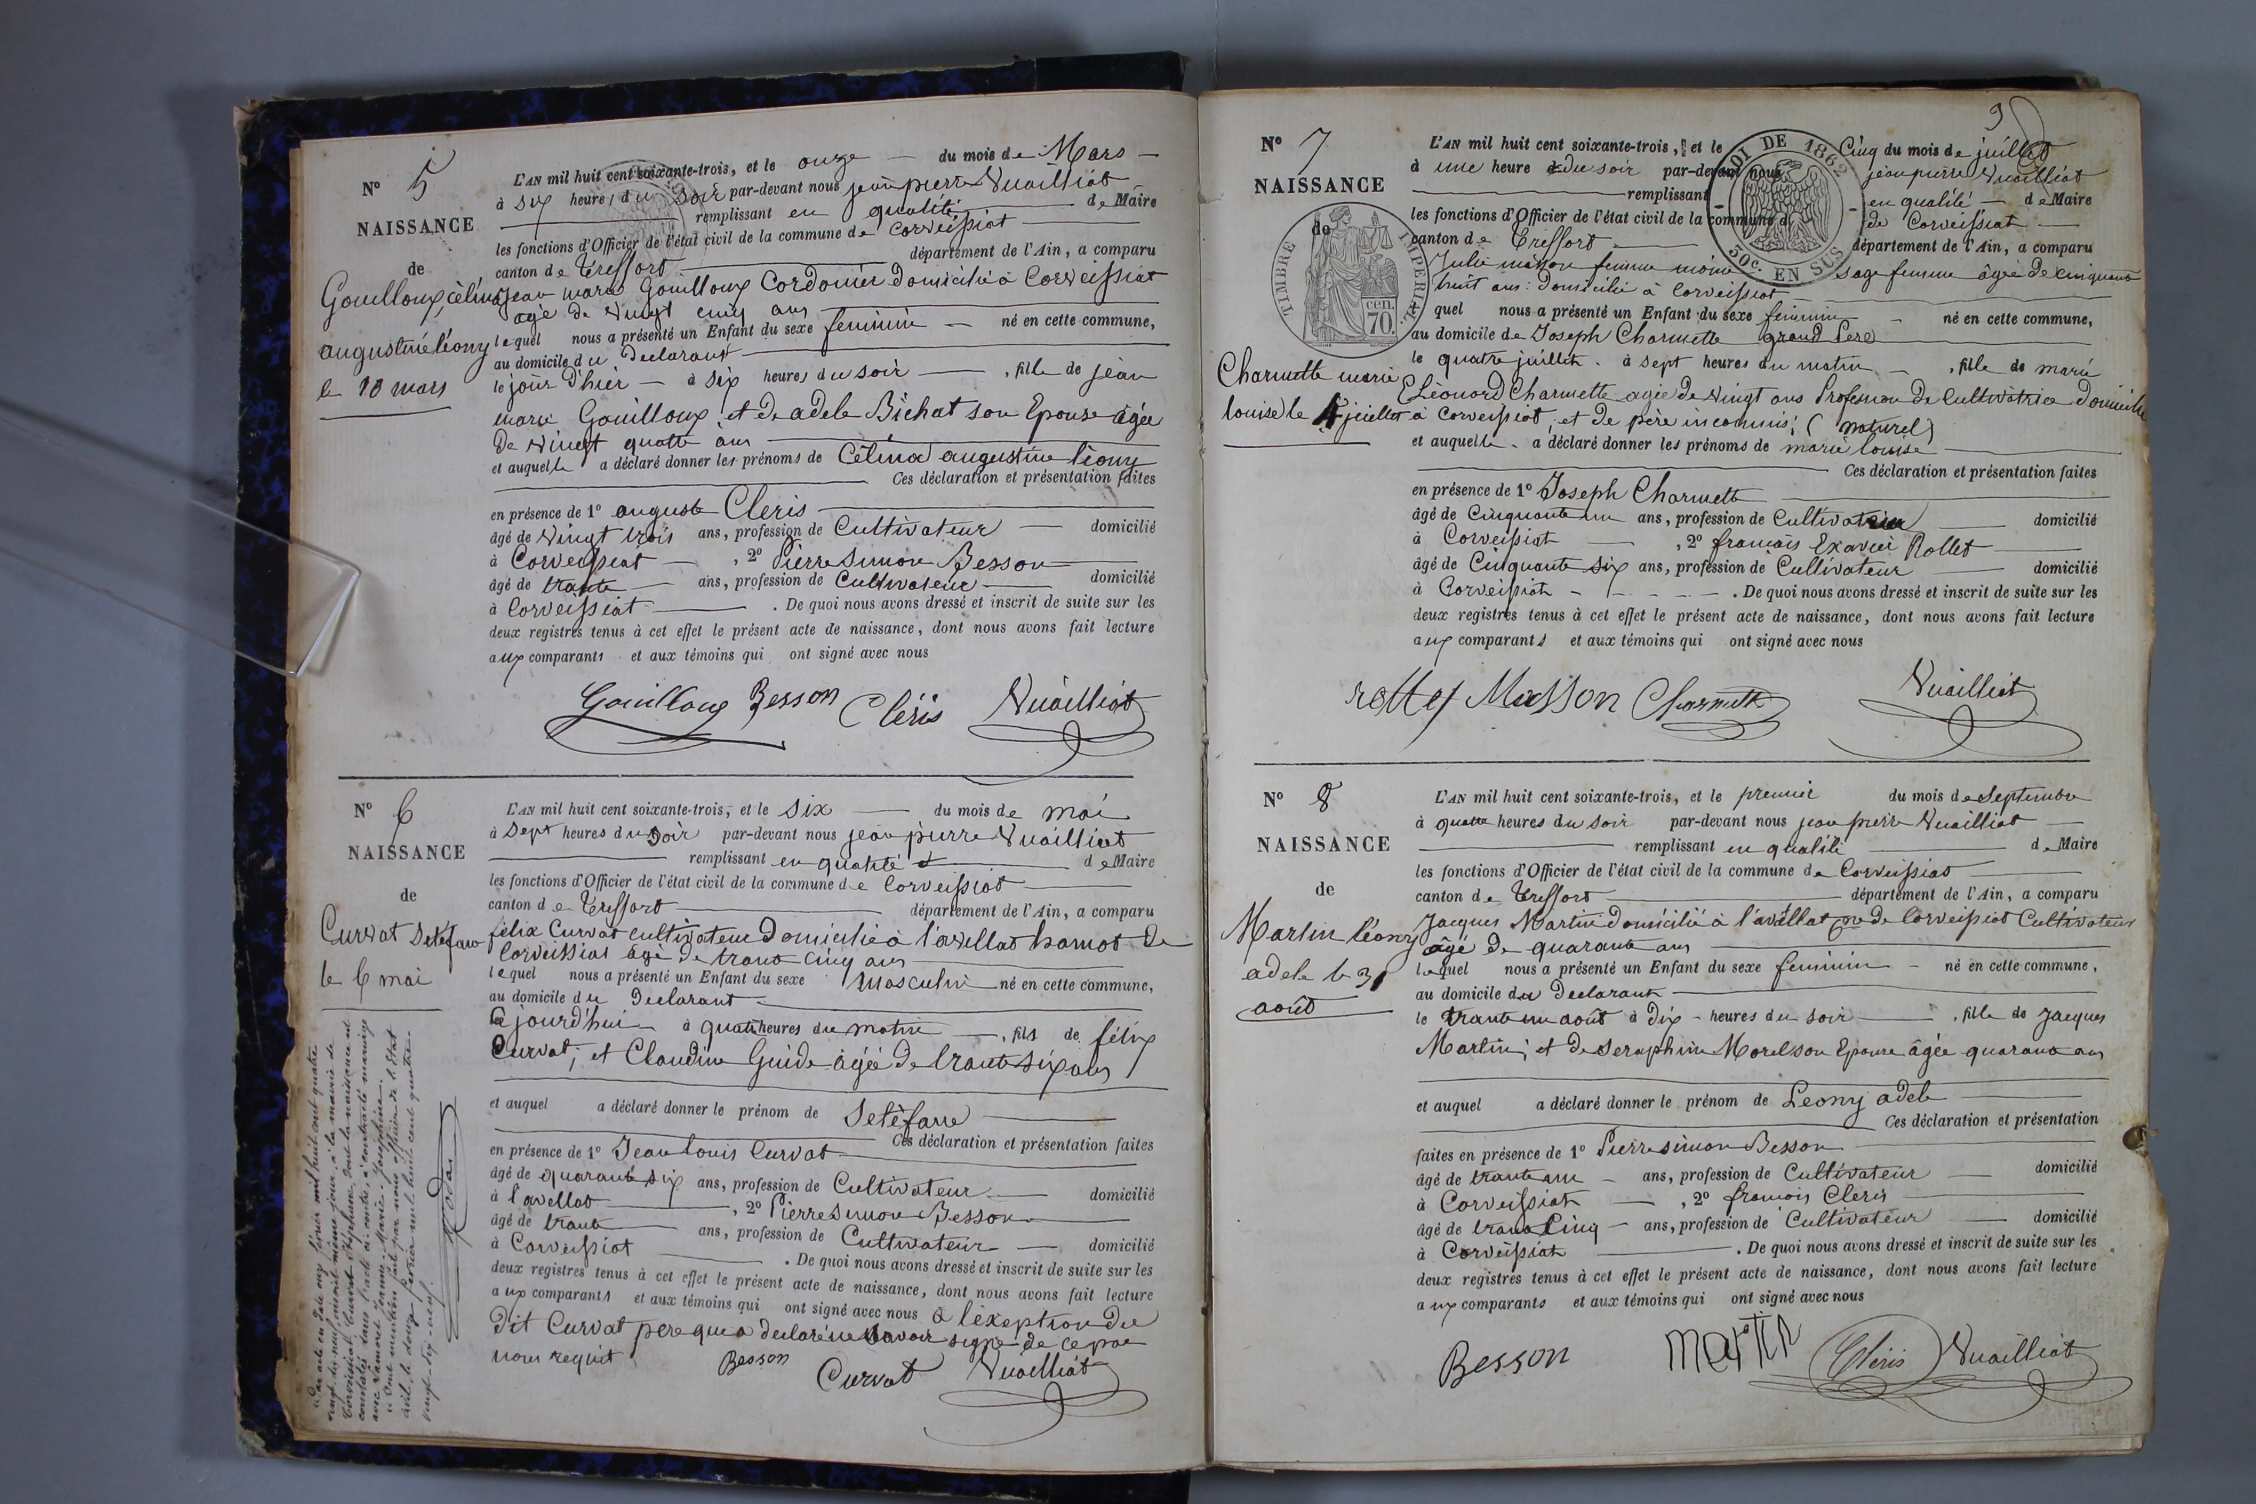 N° 5
NAISSANCE
de
Gouilloux, célina
augustine léony
le 10 mars
L'AN mil huit cent soixante-trois, et le onze du mois de Mars
à six heures du soir par-devant nous jean pierre Vuailliat
remplissant en qualité de Maire
les fonctions d'Officier de l'état civil de la commune de Corveissiat
canton de Treffort département de l'Ain, a comparu
jean marie Gouilloux Cordonier domicilié à Corveissiat
agé de vingt cinq ans
lequel nous a présenté un Enfant du sexe feminin né en cette commune,
au domicile du Declarant
le jour d'hier à six heures du soir, fille de jean
marie Gouilloux et de adele Bichat son Epouse âgée
de vingt quatre ans
et auquelle a déclaré donner les prénoms de Célina augustine léony
Ces déclaration et présentation faites
en présence de 1° auguste Cleris
âgé de vingt trois ans, profession de Cultivateur domicilié
à Corveissiat, 2° Pierre Simon Besson
âgé de trante ans, profession de Cultivateur domicilié
à Corveissiat. De quoi nous avons dressé et inscrit de suite sur les
deux registres tenus à cet effet le présent acte de naissance, dont nous avons fait lecture
aux comparants et aux témoins qui ont signé avec nous
Gouilloux Besson Cléris Vuailliat
N° 6
NAISSANCE
de
Curvat Setéfane
le 6 mai
L'AN mil huit cent soixante-trois, et le six du mois de mai
à sept heures du soir par-devant nous jean pierre Vuailliat
remplissant en qualité de Maire
les fonctions d'Officier de l'état civil de la commune de Corveissiat
canton de Treffort département de l'Ain, a comparu
félix Curvat cultivateur domicilié à l'avellat hamot de
Corveissiat âgé de trante cinq ans
lequel nous a présenté un Enfant du sexe Masculin né en cette commune,
au domicile du Declarant
ajourd'hui à quatre heures du matin, fils de félix
Curvat, et Claudine Guide âgée de trante six ans
et auquel a déclaré donner le prénom de Setéfane
Ces déclaration et présentation faites
en présence de 1° Jean Louis Curvat
âgé de quarante six ans, profession de Cultivateur domicilié
à l'avellat, 2° Pierre Simon Besson
âgé de trante ans, profession de Cultivateur domicilié
à Corveissiat. De quoi nous avons dressé et inscrit de suite sur les
deux registres tenus à cet effet le présent acte de naissance, dont nous avons fait lecture
aux comparants et aux témoins qui ont signé avec nous à l'exeption du
dit Curvat pere que a declaré ne savoir signé de ce par
nous requit
Besson Curvat Vuailliat
9
N° 7
NAISSANCE
de
TIMBRE IMPERIAL
cen. 70.
LOI DE 1862
30c. EN SUS
Charmette marie
louise le 4 juillet
L'AN mil huit cent soixante-trois, et le Cinq du mois de juillet
à une heure du soir par-devant nous jean pierre Vuailliat
remplissant en qualité de Maire
les fonctions d'Officier de l'état civil de la commune de Corveissiat
canton de Treffort département de l'Ain, a comparu
Julie masson femme sage femme âgée de cinquante
huit ans domicilié à Corveissiat
quel nous a présenté un Enfant du sexe feminin né en cette commune,
au domicile de Joseph Charmette grand Pere
le quatre juillet à sept heures du matin, fille de marie
Eléonord Charmette agée de vingt ans Profession de Cultivatrice domicilié
à Corveissiat, et de père inconnus, (naturel)
et auquelle a déclaré donner les prénoms de marie louise
Ces déclaration et présentation faites
en présence de 1° Joseph Charmette
âgé de Cinquante un ans, profession de Cultivateur domicilié
à Corveissiat, 2° francois Exavier Rollet
âgé de Cinquante six ans, profession de Cultivateur domicilié
à Corveissiat. De quoi nous avons dressé et inscrit de suite sur les
deux registres tenus à cet effet le présent acte de naissance, dont nous avons fait lecture
aux comparants et aux témoins qui ont signé avec nous
rollet Masson Charmette Vuailliat
N° 8
NAISSANCE
de
Martin léony
adele le 31
août
L'AN mil huit cent soixante-trois, et le premier du mois de Septembre
à quatre heures du soir par-devant nous jean pierre Vuailliat
remplissant en qualité de Maire
les fonctions d'Officier de l'état civil de la commune de Corveissiat
canton de Treffort département de l'Ain, a comparu
Jacques Martin domicilié à l'avellat de Corveissiat Cultivateur
âgé de quarante ans
lequel nous a présenté un Enfant du sexe feminin né en cette commune,
au domicile du Declarant
le trante un août à dix heures du soir, fille de Jacques
Martin, et de Seraphine Morel son Epouse âgée quarante ans
et auquel a déclaré donner le prénom de Leony adele
Ces déclaration et présentation
faites en présence de 1° Pierre simon Besson
âgé de trante un ans, profession de Cultivateur domicilié
à Corveissiat, 2° francois Cleris
âgé de trante Cinq ans, profession de Cultivateur domicilié
à Corveissiat. De quoi nous avons dressé et inscrit de suite sur les
deux registres tenus à cet effet le présent acte de naissance, dont nous avons fait lecture
aux comparants et aux témoins qui ont signé avec nous
Besson martin Cléris Vuailliat